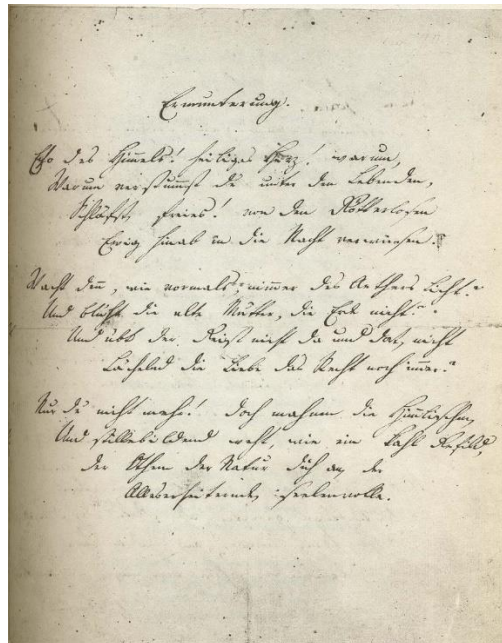 Ermunterung.
Echo des Himmels! heiliges Herz! warum,
Warum verstummst du unter den Lebenden,
Schläfst, freies! von den Götterlosen
Ewig hinab in die Nacht verwiesen?
Wacht denn, wie vormals, nimmer des Aethers Licht?
Und blüht die alte Mutter, die Erde nicht?
Und übt der Geist nicht da und dort, nicht
Lächelnd die Liebe das Recht noch immer?
Nur du nicht mehr! doch mahnen die Himmlischen,
Und stillebildend weht, wie ein kahl Gefild,
der Othem der Natur dich an, der
Alleserheiternde, seelenvolle.